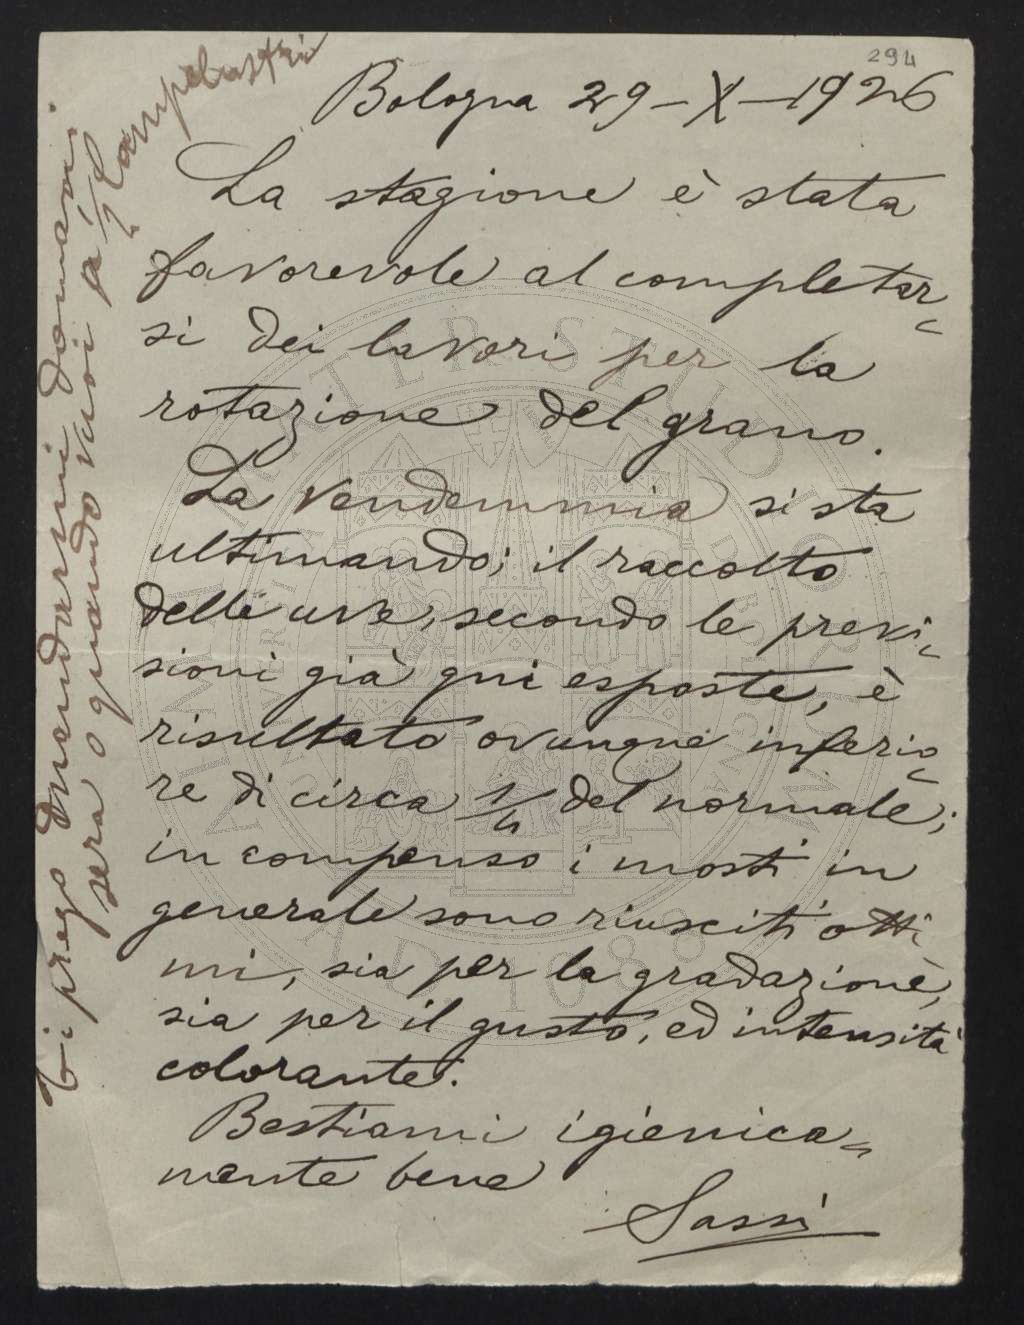 294
Bologna 29-X-1926
La stagione è stata
favorevole al completar=
si dei lavori per la
rotazione del grano.
La vendemmia si sta
ultimando; il raccolto
delle uve, secondo le previ=
sioni già qui esposte, è
risultato ovunque inferio=
re di circa 1/4 del normale;
in compenso i mosti in
generale sono riusciti otti
mi, sia per la gradazione,
sia per il gusto, ed intensità
colorante.
Bestiami igienica=
mente bene
Sassi
Ti prego mandarmi domani
sera o quando vuoi
ALMA MATER STUDIORUM
A.D. 1088